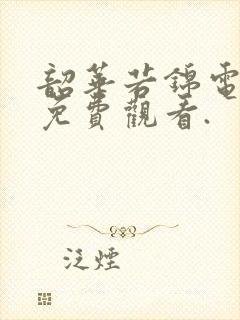 韶華若錦電
免費觀看.
泛煙